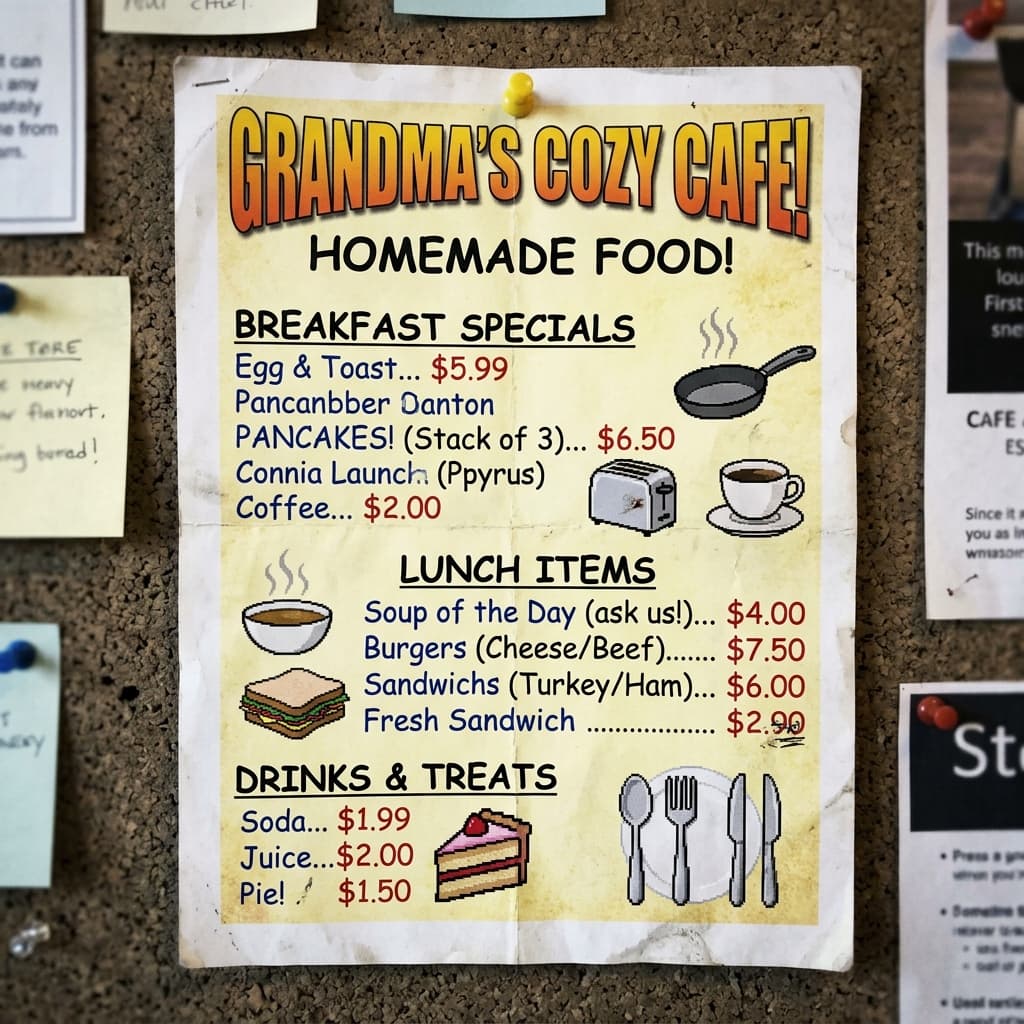 GRANDMA'S COZY CAFE!
HOMEMADE FOOD!
BREAKFAST SPECIALS
Egg & Toast... $5.99
Pancanbber Danton
PANCAKES! (Stack of 3)... $6.50
Connia Launch (Ppyrus)
Coffee... $2.00
LUNCH ITEMS
Soup of the Day (ask us!)... $4.00
Burgers (Cheese/Beef)....... $7.50
Sandwichs (Turkey/Ham)... $6.00
Fresh Sandwich .................. $2.90
DRINKS & TREATS
Soda... $1.99
Juice...$2.00
Pie! $1.50
t can
any
ately
e from
TORE
heavy
This m
lou
First
sne
CAFE
ES
Since it
you as
St